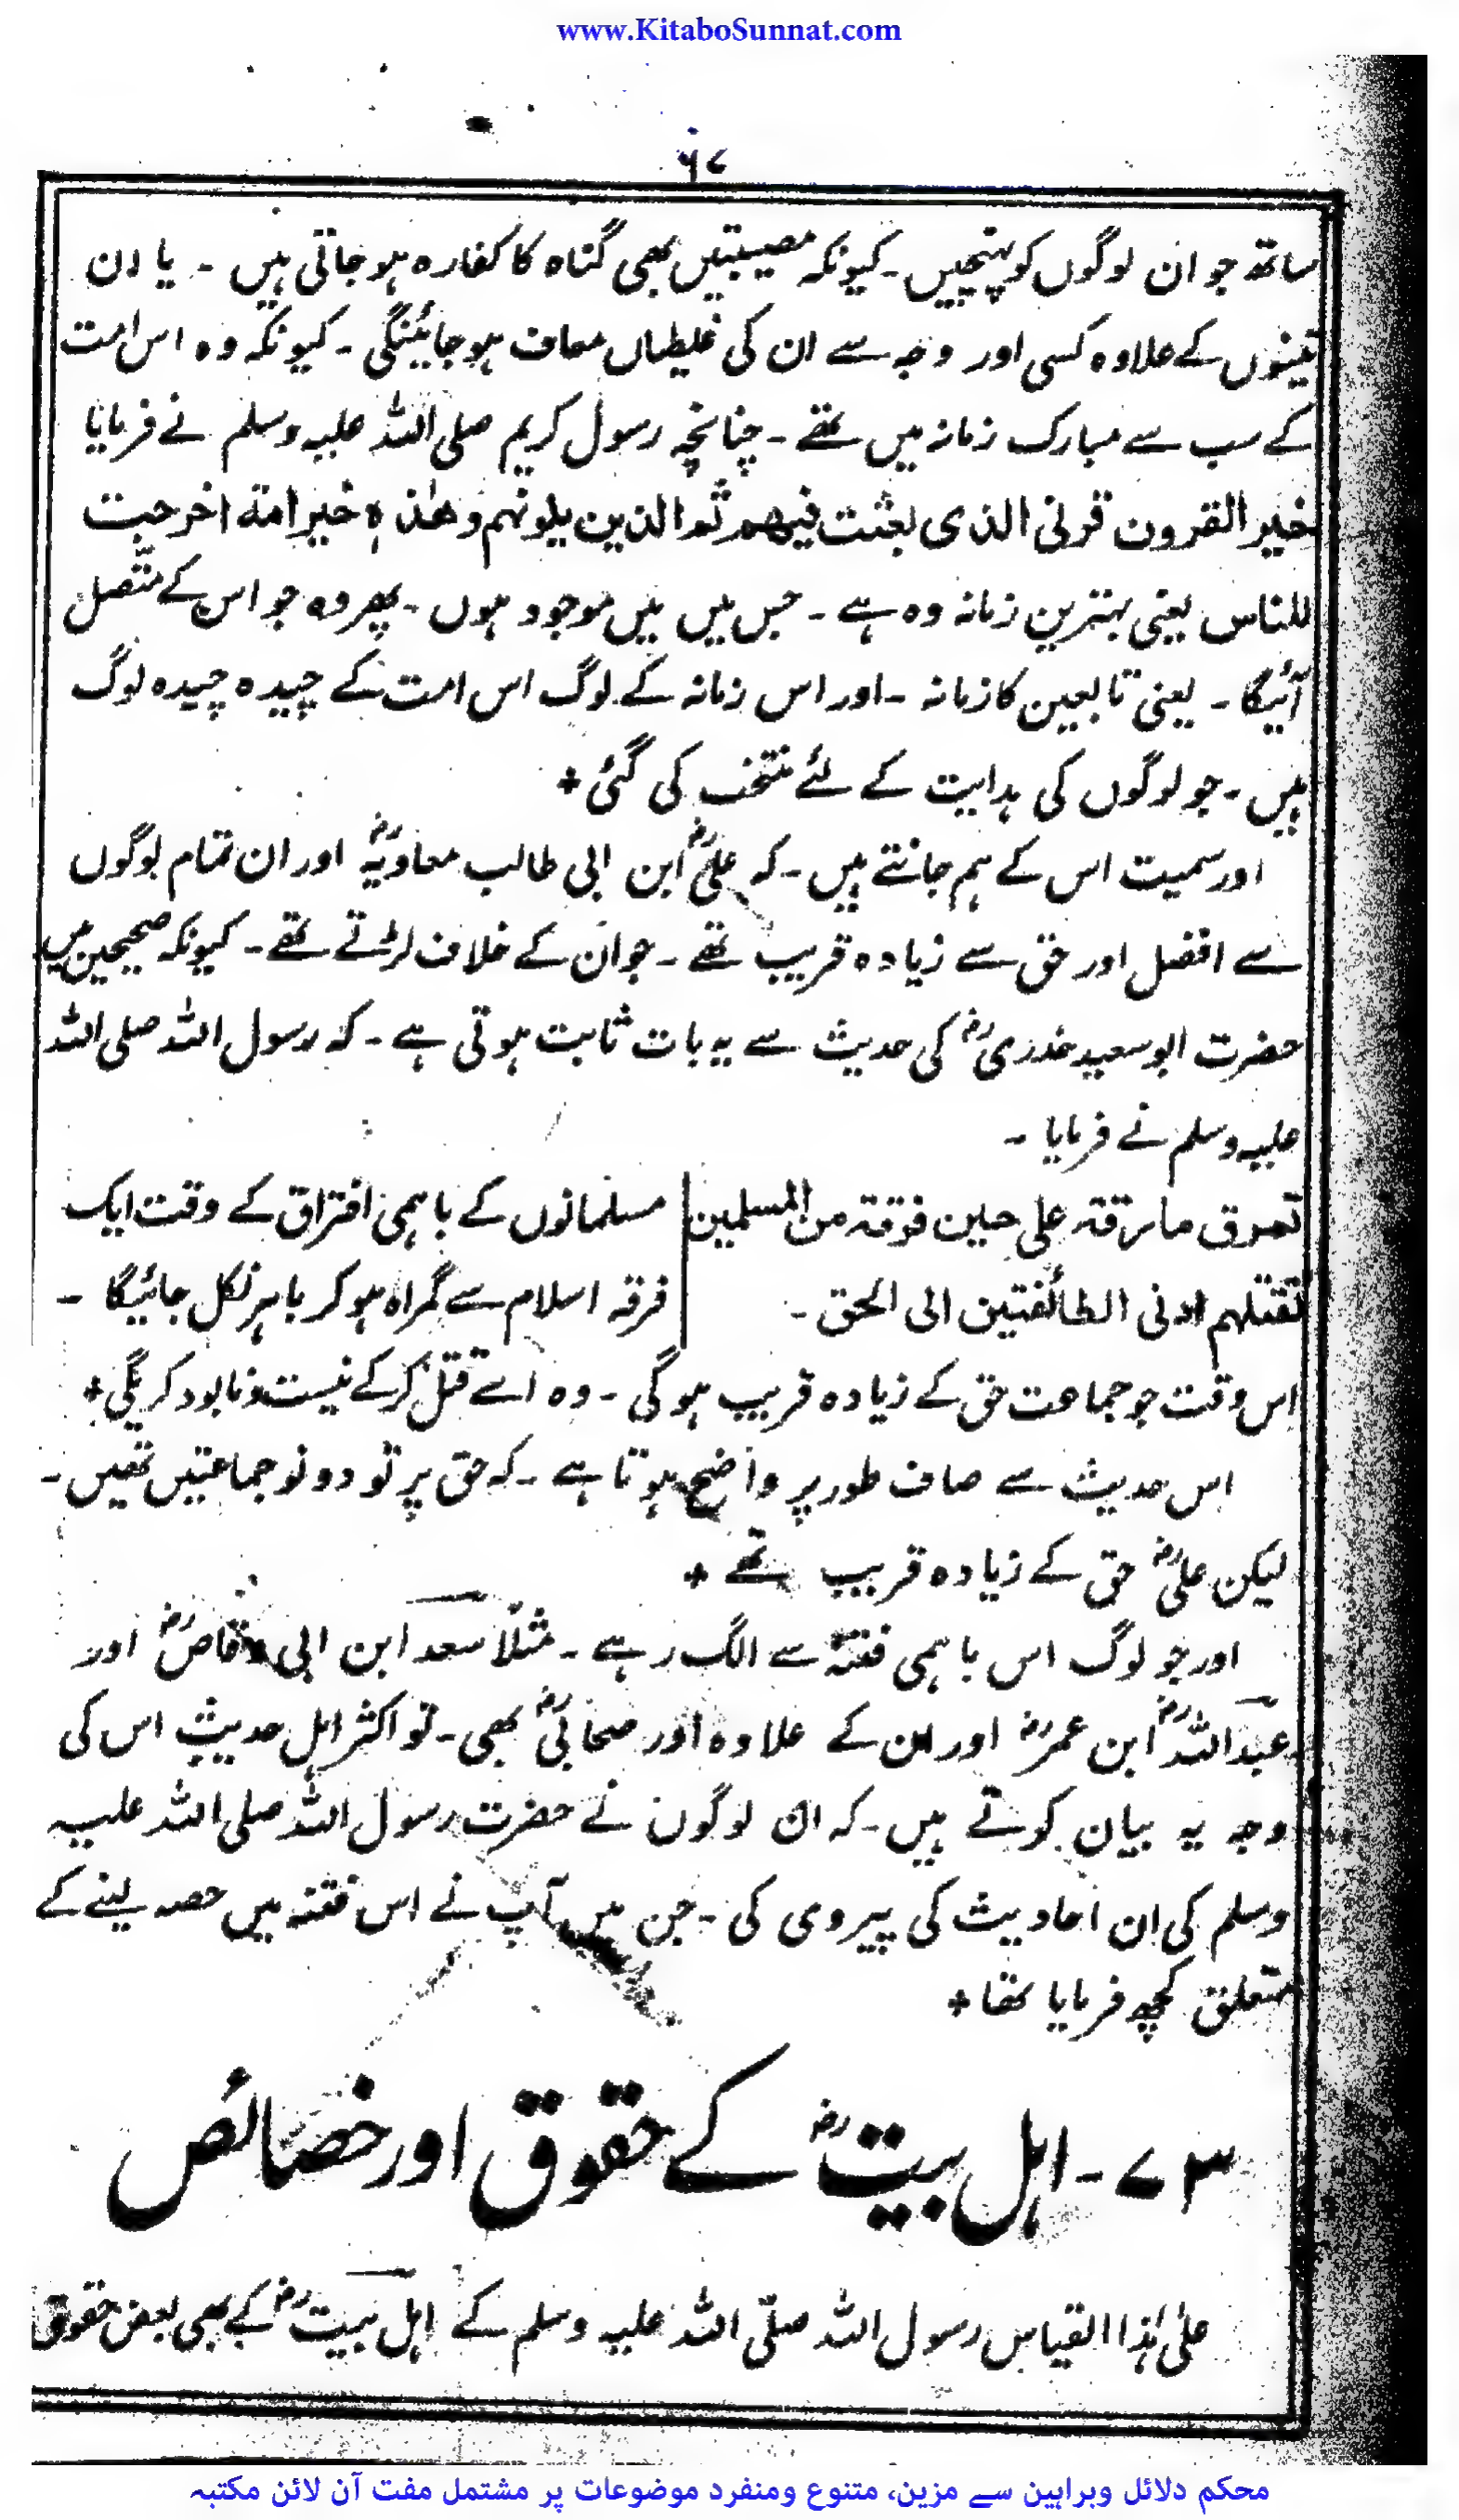 www.KitaboSunnat.com
۶۷
ساتھ جو ان لوگوں کو پہنچیں۔ کیونکہ مصیبتیں بھی گناہ کا کفارہ ہو جاتی ہیں ۔ یا ان
تینوں کے علاوہ کسی اور وجہ سے ان کی غلطیاں معاف ہو جائینگی ۔ کیونکہ وہ اس امت
کے سب سے مبارک زمانہ میں تھے ۔ چنانچہ رسول کریم صلی اللہ علیہ وسلم نے فرمایا
خیر القرون قرنی الذی بعثت فیھم ثم الذین یلونھم وھٰذہٖ خیر امۃ اخرجت
للناس یعنی بہترین زمانہ وہ ہے ۔ جس میں میں موجود ہوں ۔ پھر وہ جو اس کے متّصل
آئیگا ۔ یعنی تابعین کا زمانہ ۔ اور اس زمانہ کے لوگ اس امت کے چیدہ چیدہ لوگ
ہیں ۔ جو لوگوں کی ہدایت کے لئے منتخب کی گئی +
اور سمیت اس کے ہم جانتے ہیں ۔ کہ علیؓ ابن ابی طالب معاویہؓ اور ان تمام لوگوں
سے افضل اور حق سے زیادہ قریب تھے ۔ جو ان کے خلاف لڑتے تھے ۔ کیونکہ صحیحین میں
حضرت ابو سعید خدریؓ کی حدیث سے یہ بات ثابت ہوتی ہے ۔ کہ رسول اللہ صلی اللہ
علیہ وسلم نے فرمایا ۔
تمرق مارقۃ علی حین فرقۃ من المسلمین
تقتلھم ادنی الطائفتین الی الحق ۔
مسلمانوں کے باہمی افتراق کے وقت ایک
فرقہ اسلام سے گمراہ ہو کر باہر نکل جائیگا ۔
اس وقت جو جماعت حق کے زیادہ قریب ہو گی ۔ وہ اسے قتل کر کے نیست و نابود کریگی +
اس حدیث سے صاف طور پر واضح ہوتا ہے ۔ کہ حق پر تو دونو جماعتیں تھیں ۔
لیکن علیؓ حق کے زیادہ قریب تھے +
اور جو لوگ اس باہمی فتنہ سے الگ رہے ۔ مثلاً سعد ابن ابی وقاصؓ اور
عبداللہؓ ابن عمرؓ اور ان کے علاوہ اور صحابیؓ بھی ۔ تو اکثر اہل حدیث اس کی
وجہ یہ بیان کرتے ہیں ۔ کہ ان لوگوں نے حضرت رسول اللہ صلی اللہ علیہ
وسلم کی ان احادیث کی پیروی کی ۔ جن میں آپ نے اس فتنہ میں حصہ لینے کے
متعلق کچھ فرمایا تھا +
۷۳ ۔ اہل بیتؓ کے حقوق اور خصائص
علیٰ ہٰذا القیاس رسول اللہ صلّی اللہ علیہ وسلم کے اہل بیتؓ کے بھی بعض حقوق
محکم دلائل وبراہین سے مزین، متنوع ومنفرد موضوعات پر مشتمل مفت آن لائن مکتبہ